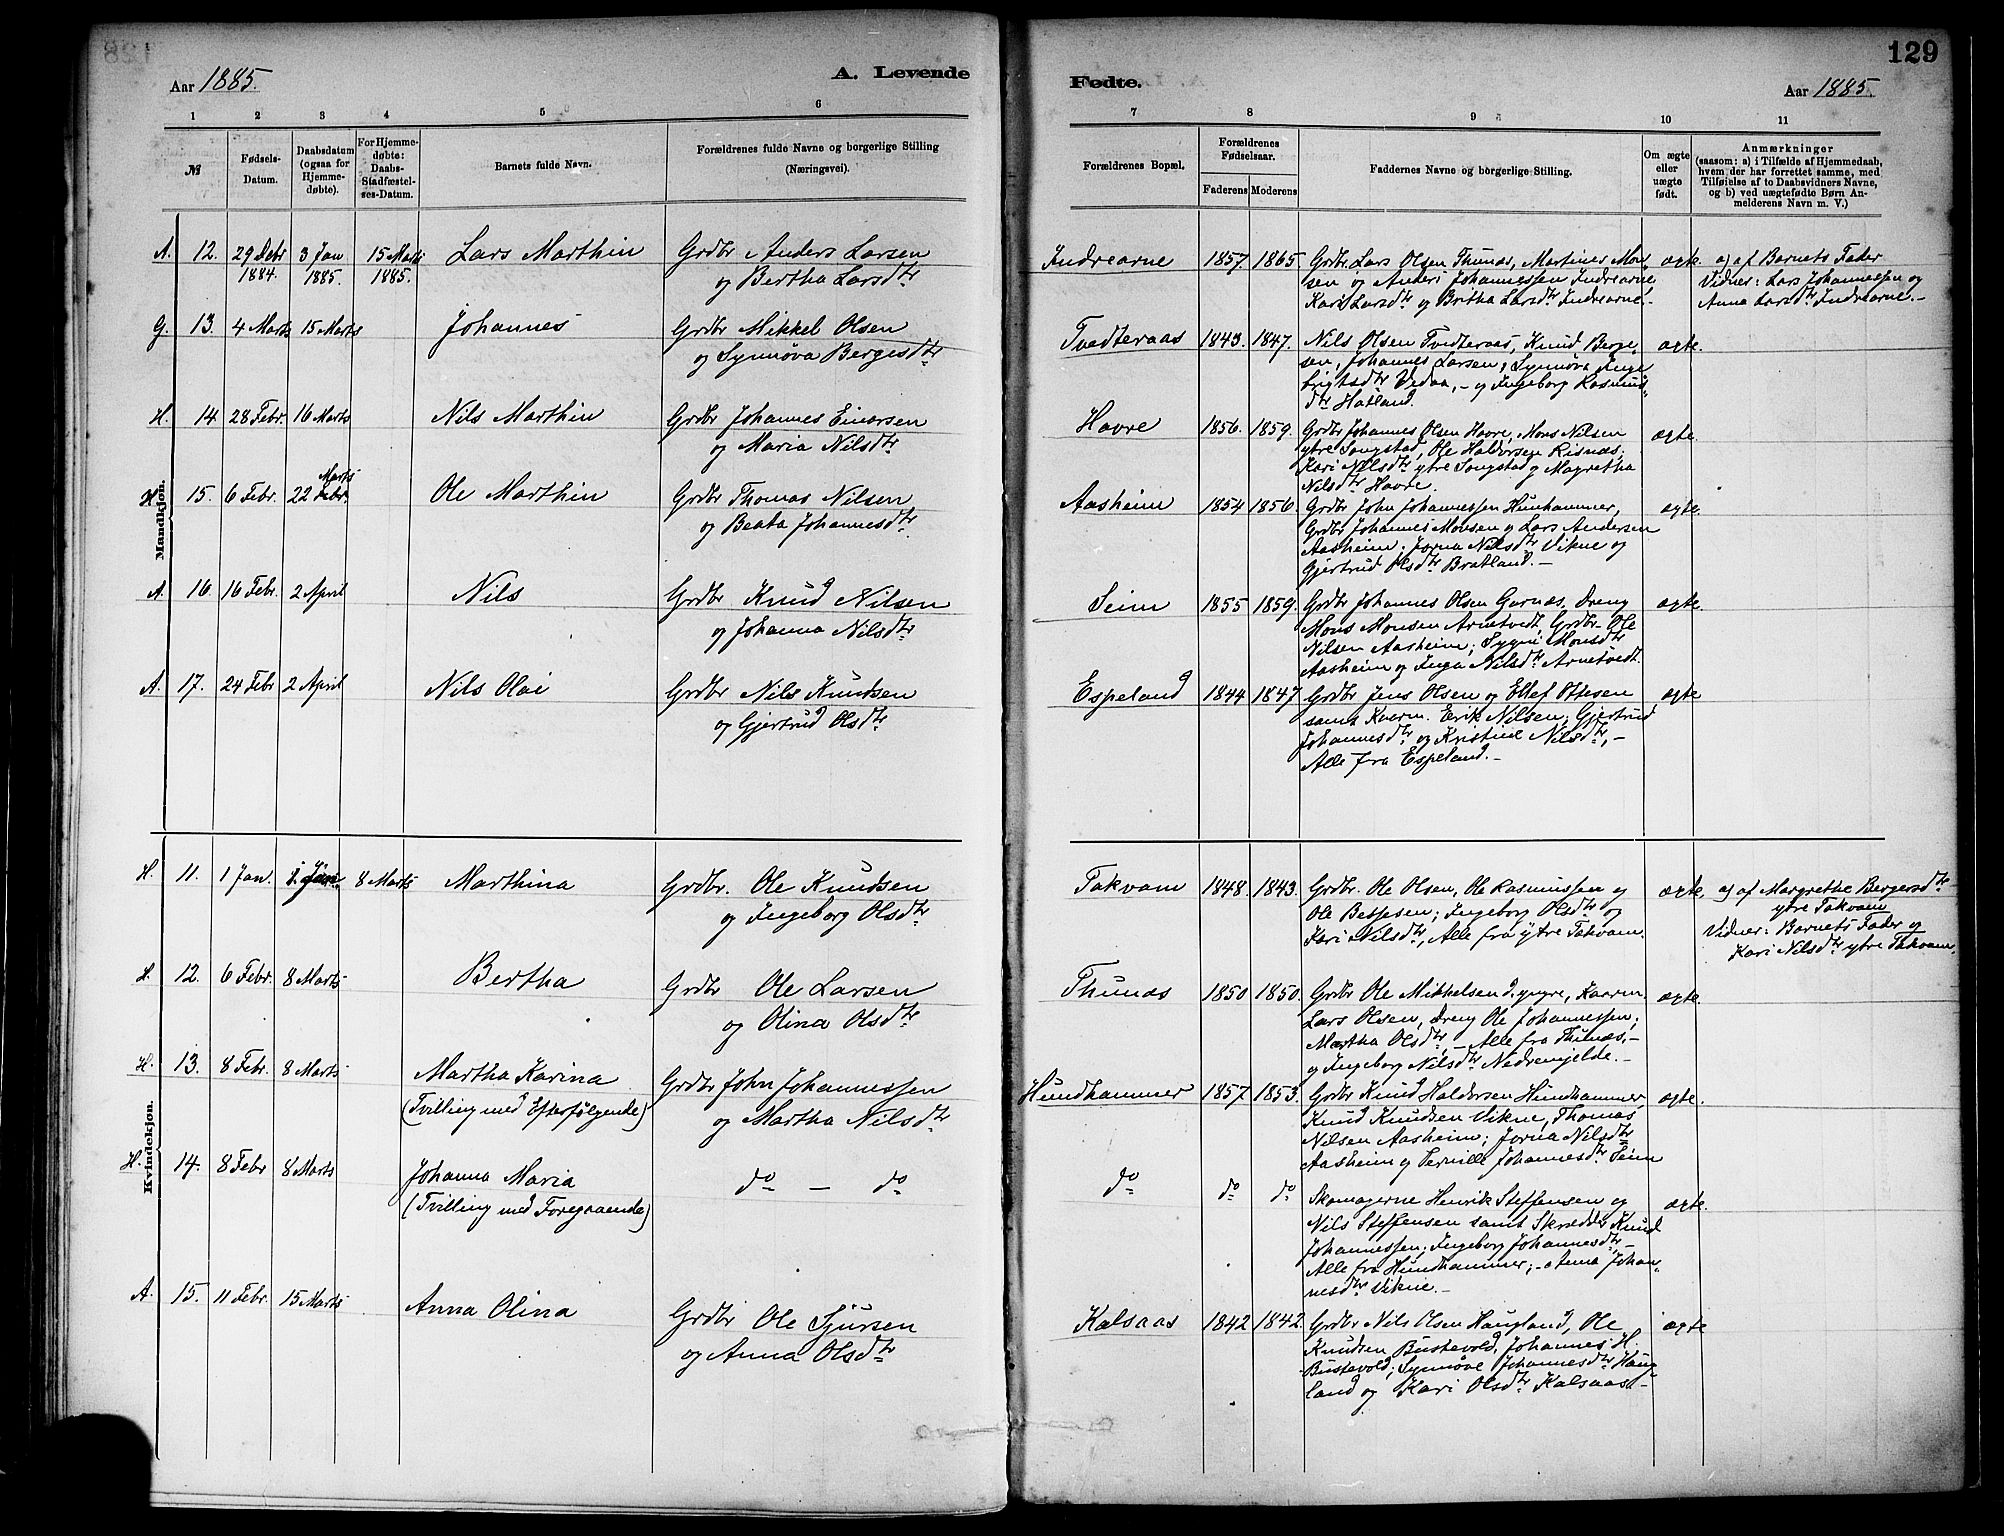 129
Aar 1885.
A. Levende
Fødte.
Aar 1885.
1 2 3 4 5 6
7 8 9 10 11
№
Fødsels-
Datum.
Daabsdatum
(ogsaa for
Hjemme-
døbte).
For Hjemme-
døbte:
Daabs-
Stadfæstel-
ses-Datum.
Barnets fulde Navn.
Forældrenes fulde Navne og borgerlige Stilling
(Næringsvei).
Forældrenes Bopæl.
Forældrenes
Fødselsaar.
Faderens Moderens
Faddernes Navne og borgerlige Stilling.
Om ægte
eller
uægte
født.
Anmærkninger
(saasom: a) i Tilfælde af Hjemmedaab,
hvem der har forrettet samme, med
Tilføielse af to Daabsvidners Navne,
og b) ved uægtefødte Børn An-
melderens Navn m. V.)
Mandkjøn.
A. 12. 29 Debr 3 Jan 15 Marts Lars Marthin Grdbr Anders Larsen
1884. 1885. 1885. og Bertha Larsdtr
Indrearne 1857. 1865. Grdbr. Lars Olsen Thunæs, Martinus Mon-
sen og Anders Johannessen Indrearne,
Kari Larsdtr og Britha Larsdtr Indrearne.-
ægte. a) af Barnets Fader
Vidner: Lars Johannessen og
Anna Larsdtr Indrearne.-
G. 13. 4 Marts 15 Marts Johannes Grdbr Mikkel Olsen
og Synnøva Bergesdtr
Tvedteraas 1843. 1847. Nils Olsen Tvedteraas, Knud Berge-
sen, Johannes Larsen; Synnøva Inge
brigtsdtr Vedaa,- og Ingeborg Rasmus-
dtr Hatland.
ægte.
H. 14. 28 Febr. 16 Marts Nils Marthin Grdbr Johannes Einersen
og Maria Nilsdtr
Havre 1856. 1859. Grdbr Johannes Olsen Havre, Mons Nilsen
ytre Songstad, Ole Haldorsen Risnæs;
Kari Nilsdtr ytre Songstad og Magretha
Nilsdtr Havre.
ægte.
H. 15. 6 Febr. 22 Febr. Marts Ole Marthin Grdbr Thomas Nilsen
og Beata Johannesdtr
Aasheim 1854 1856. Grdbr John Johannessen Hunhammer,
Grdbr Johannes Monsen og Lars Andersen
Aasheim; Jorna Nilsdtr Vikne og
Gjertrud Olsdtr Bratland.-
ægte.
A. 16. 16 Febr. 2 April Nils Grdbr Knud Nilsen
og Johanna Nilsdtr
Seim 1855 1859. Grdbr Johannes Olsen Garnæs, Dreng
Mons Monsen Arnetvedt, Grdbr Ole
Nilsen Aasheim; Sygni Monsdtr
Aasheim og Inga Nilsdtr Arnetvedt.
ægte.
A. 17. 24 Febr 2 April Nils Olai Grdbr Nils Knudsen
og Gjertrud Olsdtr
Espeland 1844 1847 Grdbr Jens Olsen og Ellef Ottesen
samt Kaarm. Erik Nilsen; Gjertrud
Johannesdtr og Kristine Nilsdtr,-
Alle fra Espeland.-
ægte
Kvindekjøn.
H. 11. 1 Jan. 1 Jan. 8 Marts Marthina Grdbr. Ole Knudsen
og Ingeborg Olsdtr
Takvam 1848. 1843. Grdbr. Ole Olsen, Ole Rasmussen og
Ole Bessesen; Ingeborg Olsdtr og
Kari Nilsdtr, Alle fra ytre Takvam.
ægte. a) af Margrethe Bergersdtr
ytre Takvam
Vidner: Barnets Fader og
Kari Nilsdtr ytre Takvam.
H. 12. 6 Febr. 8 Marts Bertha Grdbr Ole Larsen
og Olina Olsdtr
Thunæs 1850 1850. Grdbr Ole Mikkelsen d. yngre, Kaarm.
Lars Olsen, Dreng Ole Johannessen;
Martha Olsdtr,- Alle fra Thunæs,-
og Ingeborg Nilsdtr Nedremjelde.-
ægte.
H. 13. 8 Febr. 8 Marts Martha Karina Grdbr John Johannessen
(Tvilling med Efterfølgende) og Martha Nilsdtr
Hundhammer 1857 1853. Grdbr Knud Haldorsen Hundhammer,
Knud Knudsen Vikne, Thomas
Nilsen Aasheim; Jorna Nilsdtr
Aasheim og Pernille Johannesdtr Seim
ægte.
H. 14. 8 Febr 8 Marts Johanna Maria do - do
(Tvilling med Foregaaende)
do do do Skomagerne Henrik Steffensen og
Nils Steffensen samt Skrædder Knud
Johannessen; Ingeborg Johannesdtr,-
Alle fra Hundhammer;- og Anna Johan-
nesdtr Vikne.-
ægte.
A. 15. 11 Febr. 15 Marts Anna Olina Grdbr Ole Sjursen
og Anna Olsdtr
Kalsaas 1842 1842. Grdbr Nils Olsen Haugland, Ole
Knudsen Bustevold, Johannes H.
Bustevold; Synnøve Johannesdtr Haug-
land og Kari Olsdtr Kalsaas.-
ægte